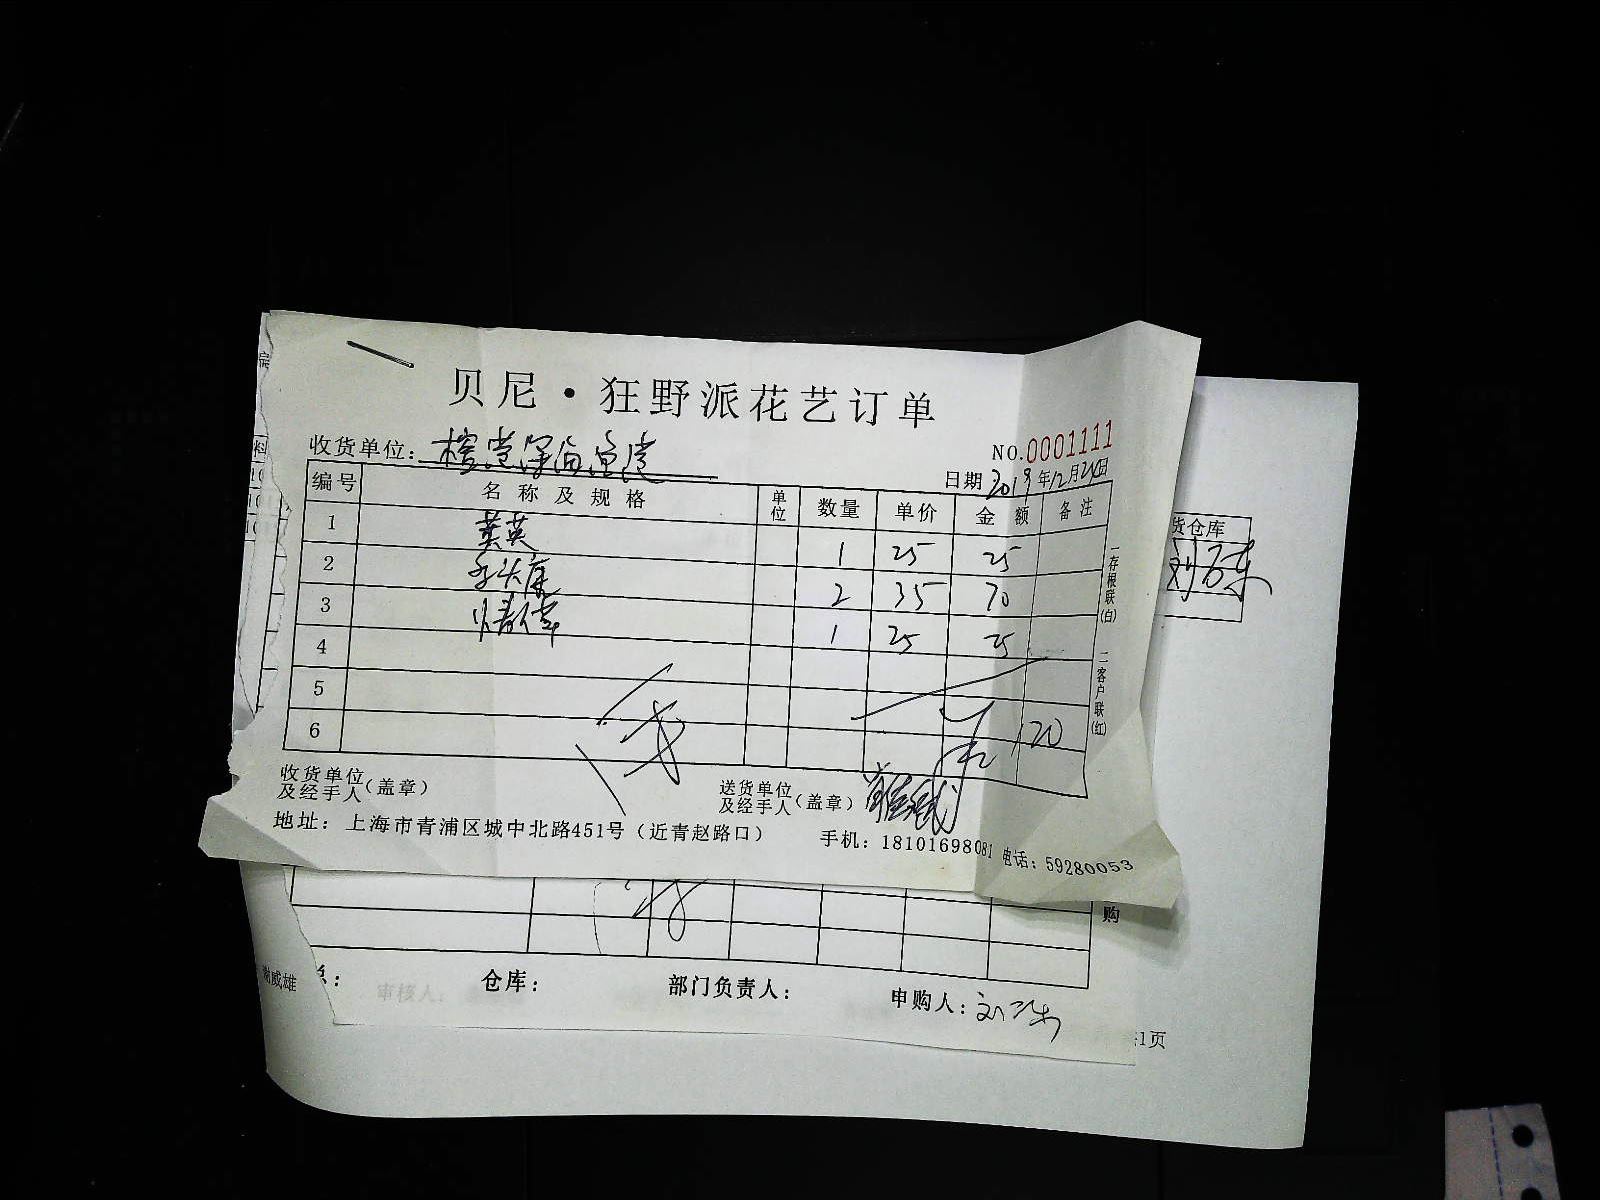 贝尼·狂野派花艺订单
收货单位:
NO.0001111
日期 2019年12月20日
编号 名称及规格 单位 数量 单价 金额 备注
1 黄英 1 25 25
2 2 35 70
3 1 25 25
4
5
6 120
一存根联(白) 二客户联(红)
收货单位及经手人(盖章)
送货单位及经手人(盖章)
地址:上海市青浦区城中北路451号(近青赵路口) 手机:18101698081 电话:59280053
货仓库
料
购
谢威雄
总: 仓库: 部门负责人: 申购人:
审核人:
1页